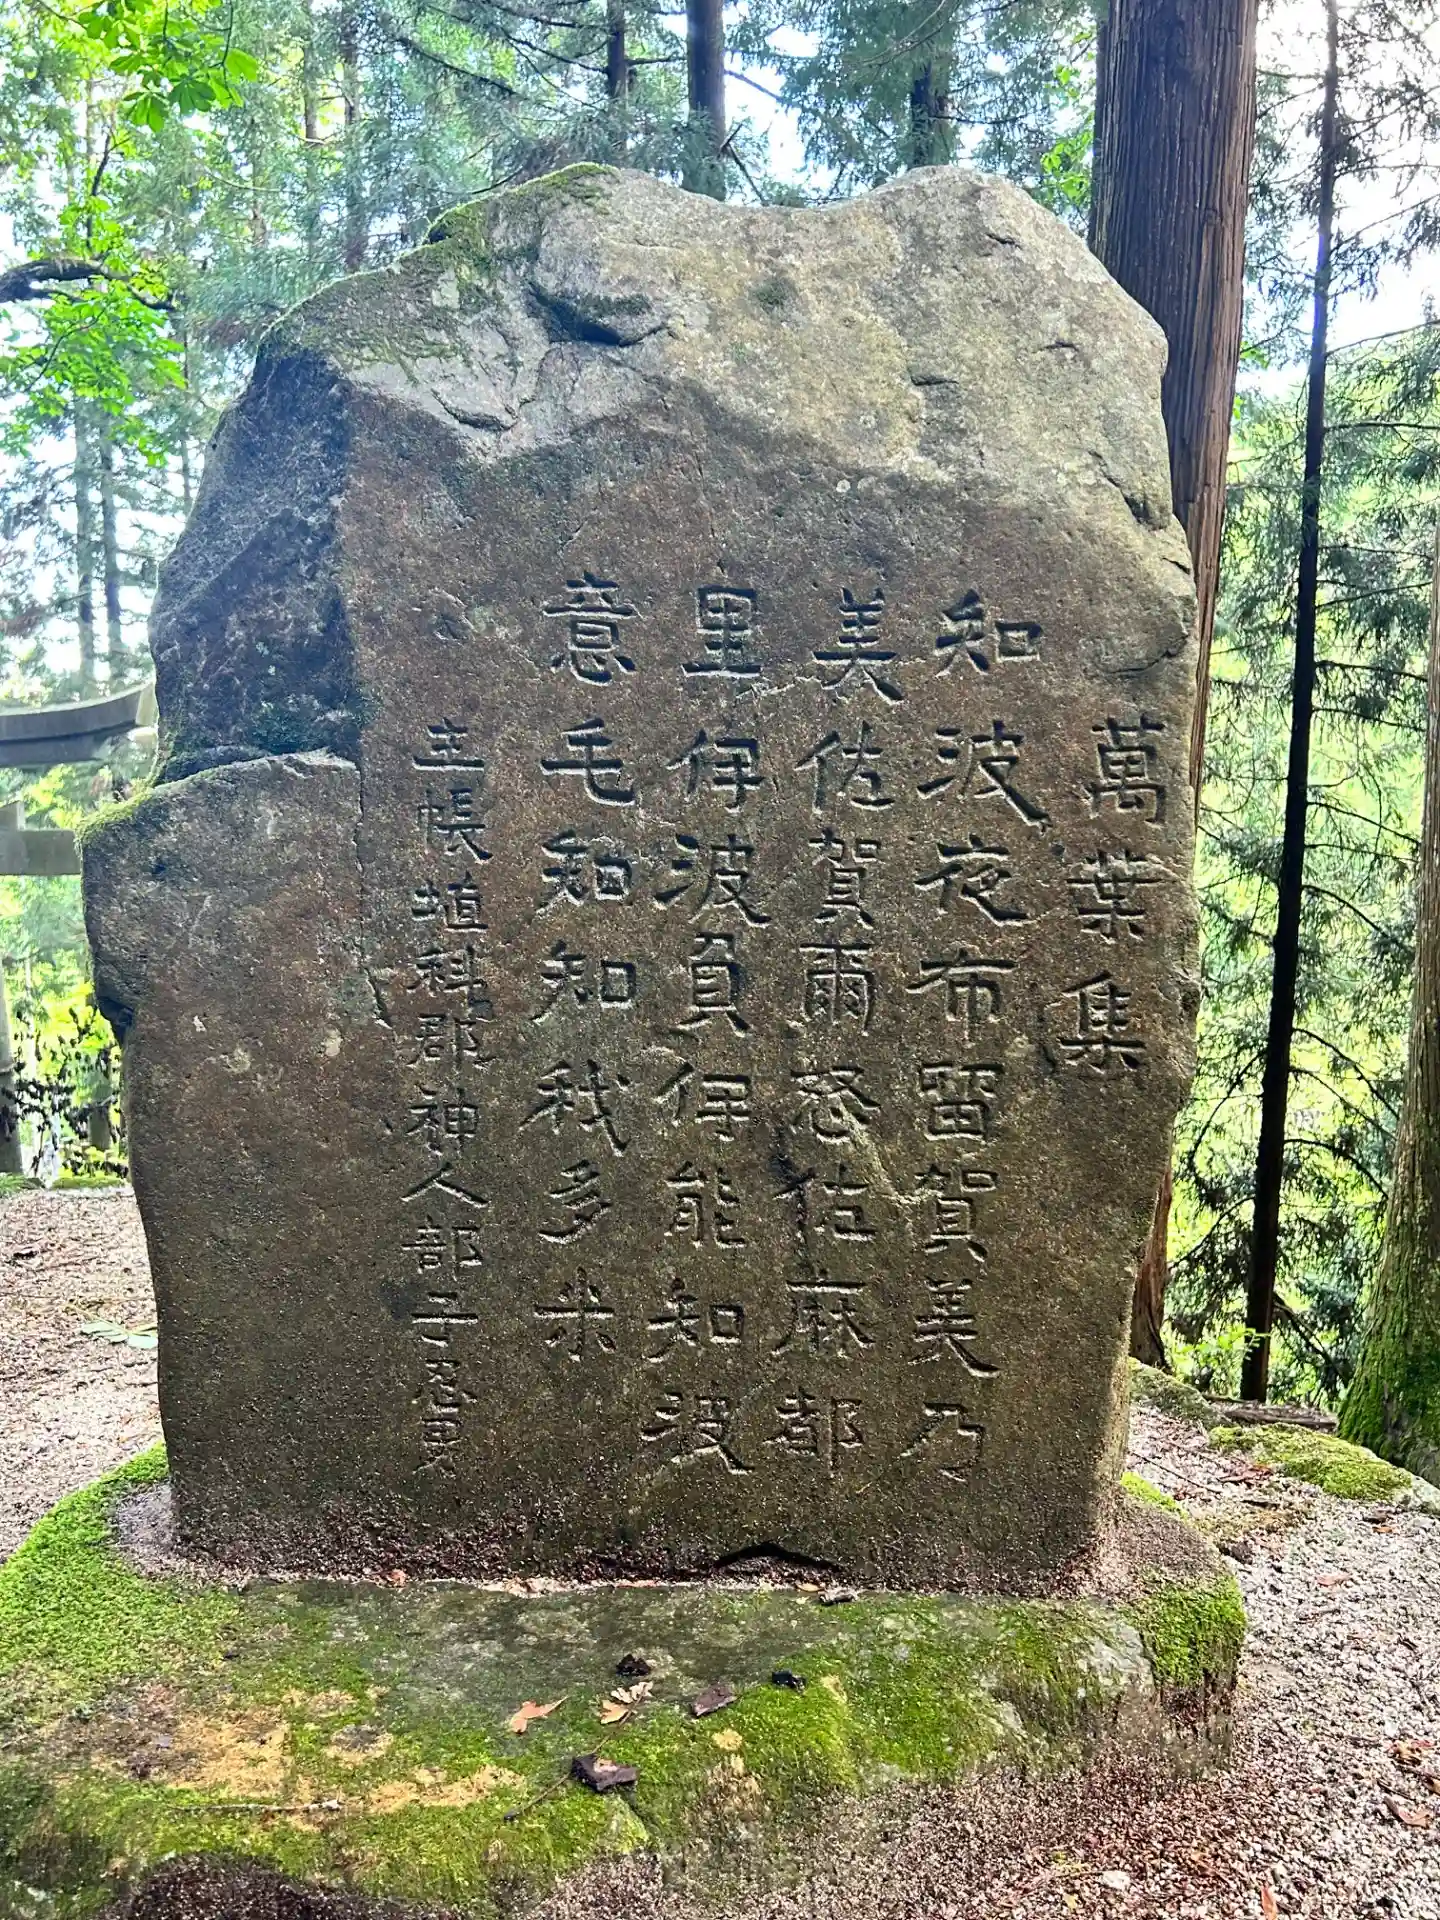 萬葉集
知波夜布留賀美乃
美佐賀爾怒佐麻都
里伊波負伊能知波
意毛知知我多米
主帳埴科郡神人部子忍男